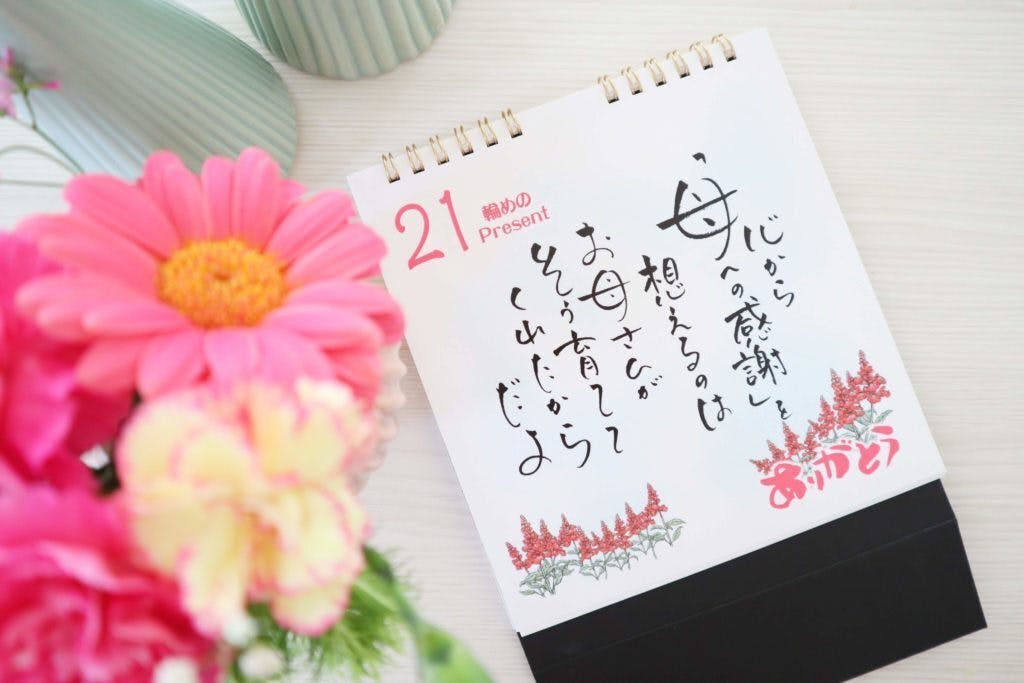 21
輪めの
Present
心から
「母への感謝」を
想えるのは
お母さんが
そう育てて
くれたから
だよ
ありがとう